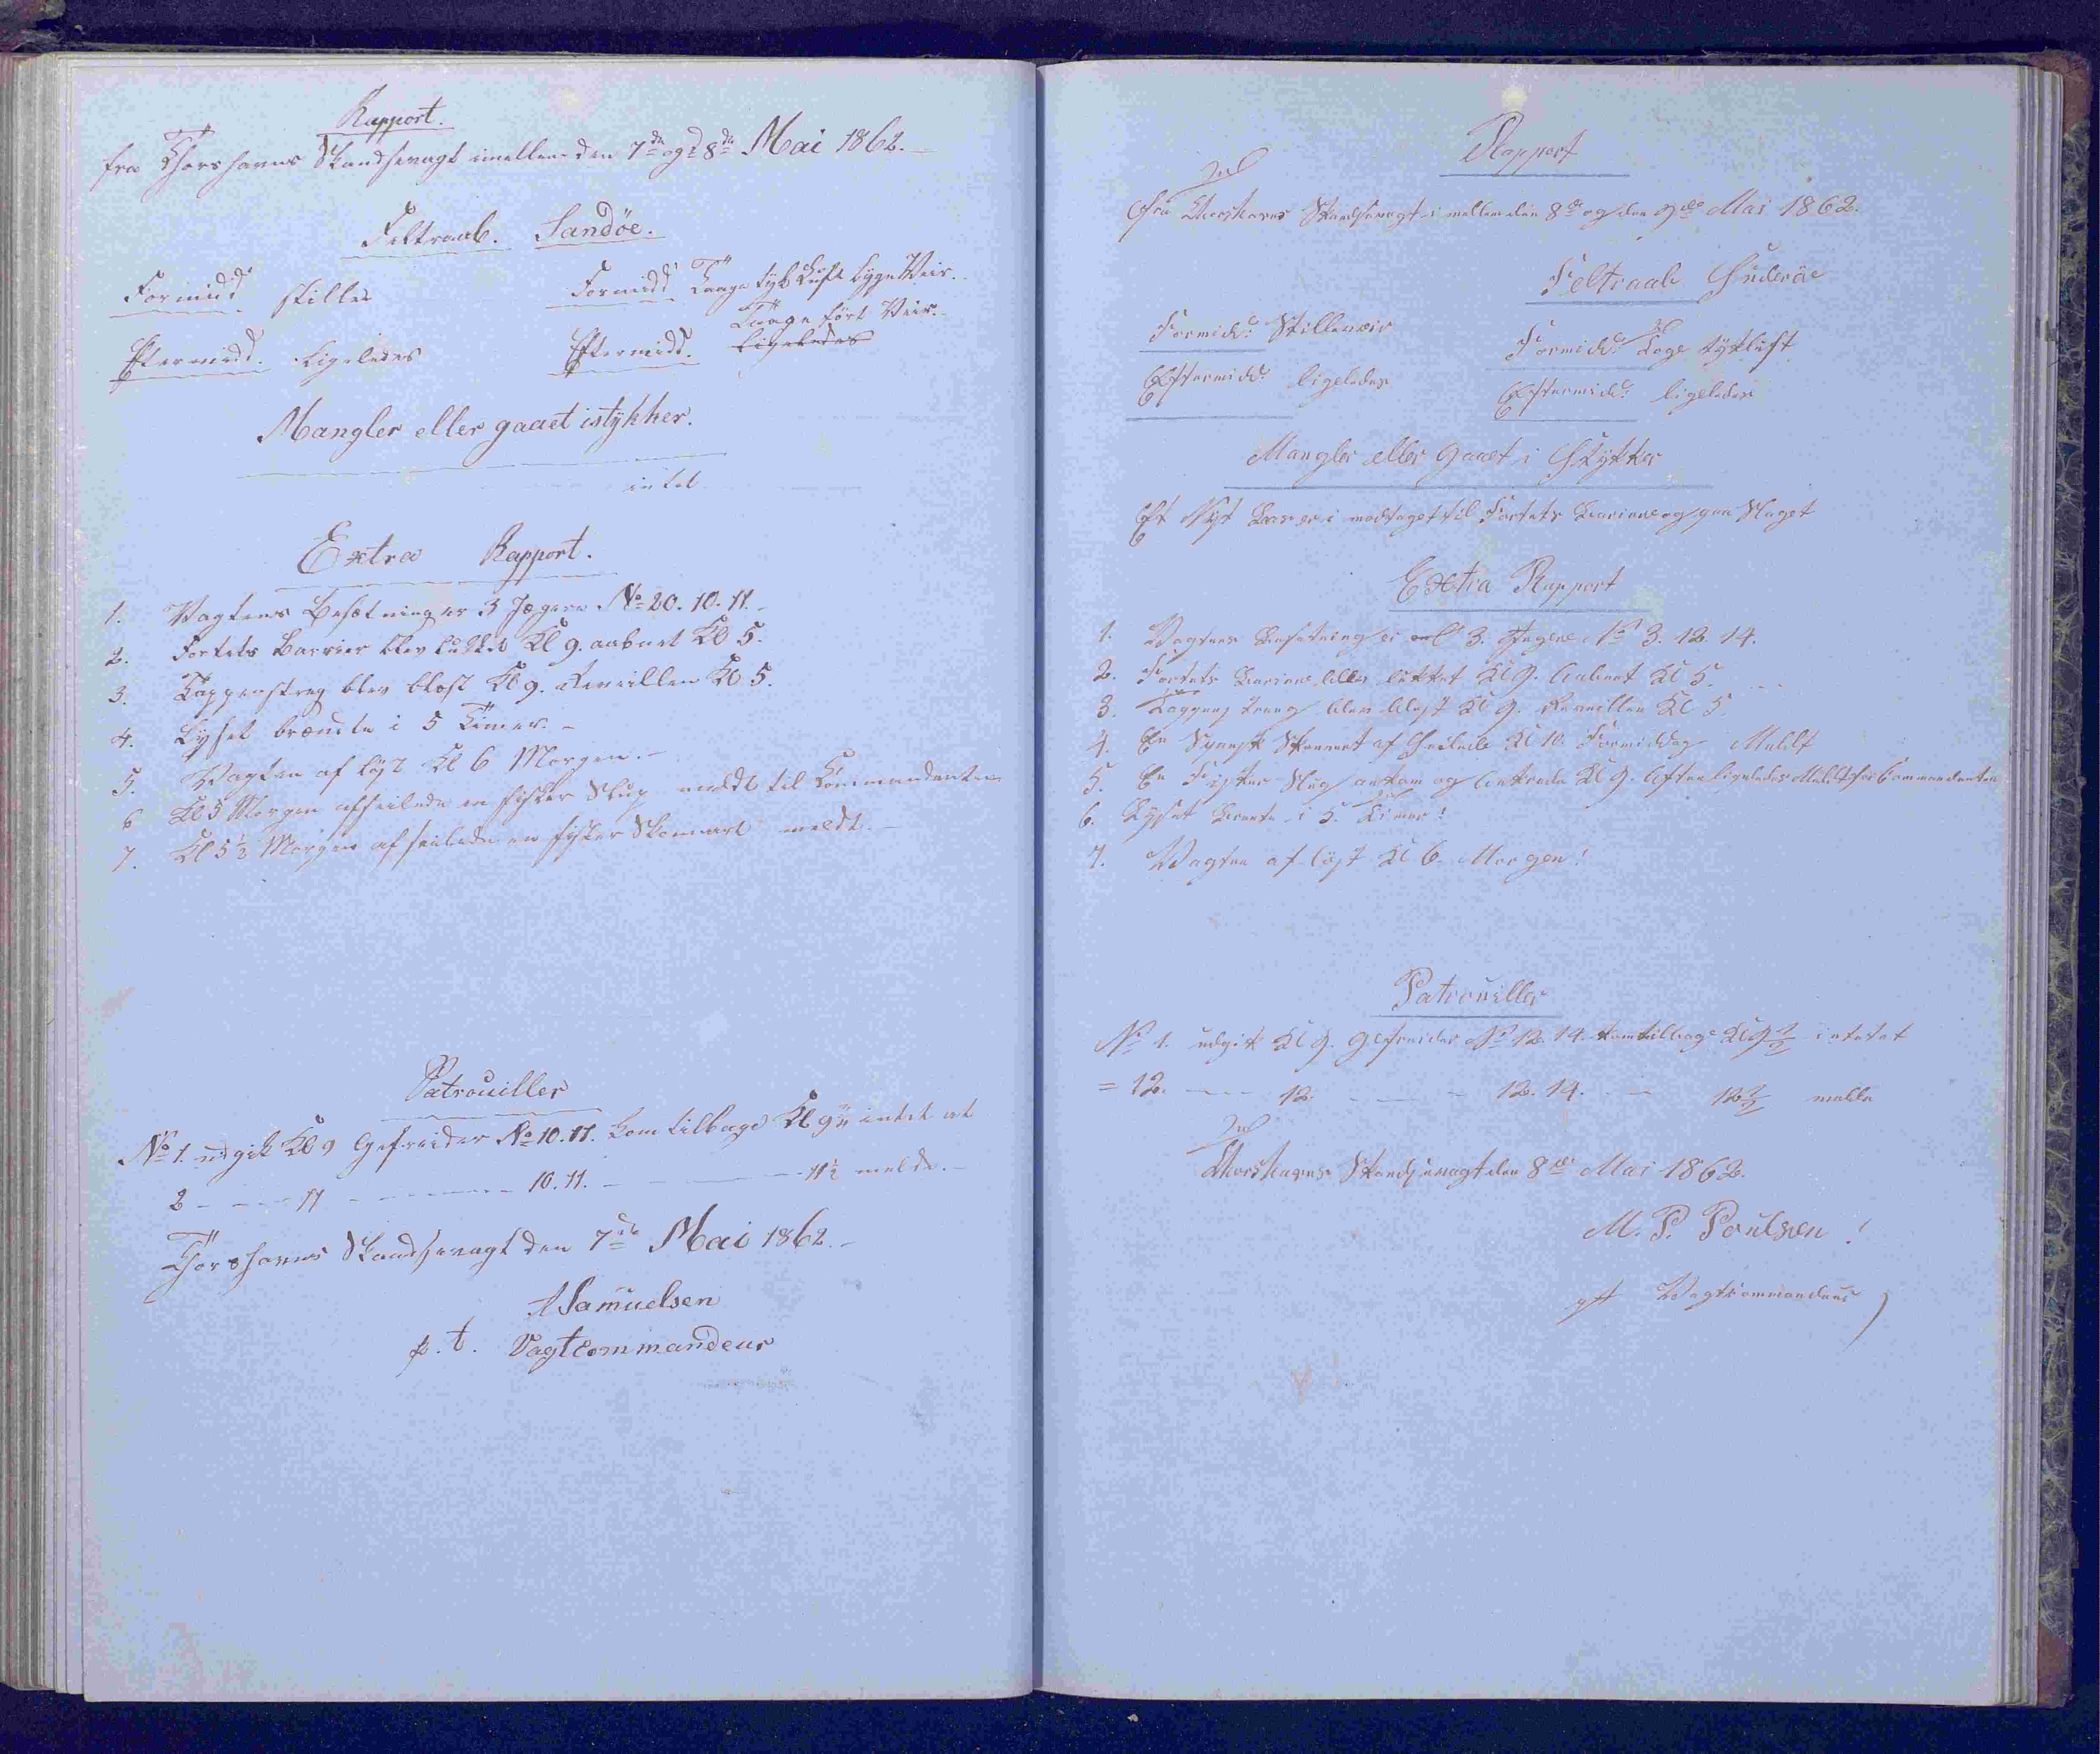 Rapport.
fra Thorshavns Skandsevagt imellem den 7de og 8de Mai 1862.
Feltraab. Sandöe.
Formidd stille Formidd Taage tyk Luft Lygn Veir.
Taage tört Veir.
Eftermidd. Ligeledes Eftermidd. Ligeledes
Mangler eller gaaet istykker.
intet
Extra Rapport.
1. Vagtens Besætning er 3 Jægere No 20. 10. 11.
2. Fortets Barrier blev lukket Kl 9. aabnet Kl 5.
3. Tappenstreg blev blæst Kl 9. Reveillen Kl 5.
4. Lyset brændte i 5 Timer.
5. Vagten aflöst Kl 6 Morgen.
6 Kl 5 Morgen afseilede en fisker Slup meldt til Commandanten
7. Kl 5½ Morgen afseilede en fisker Skonnert meldt.
Patrouiller
No 1. udgik Kl 9 Gefreider No 10. 11. kom tilbage Kl 9½ intet at
2 - - - 11 - - - - 10. 11. - - - 11½ melde.
Thorshavns Skandsevagt den 7de Mai 1862.
A Samuelsen
p. t. Vagtcommandeur
Rapport
Fra Thorshavns Skandsevagt i mellem den 8de og den 9de Mai 1862.
Feltraab Suderöe
Formidd: Stilleveir Formidd: Toge tykluft
Eftermidd: ligeledes Eftermidd: ligeledes
Mangler eller Gaaet i Stykker
Et Nyt er i modtaget til Fortets Bariere og
Extra Rapport
1. Vagtens Besætning er 3. Jægere No 3. 12. 14.
2. Fortets Bariere blev lukket Kl 9. Aabnet Kl 5.
3. Tappenstreeg blev blæst Kl 9. Reveillen Kl 5
4. En Spansk Skonnert af Seilede Kl 10. Formiddag Meldt
5. En Fisker Slup ankom og Ankrede Kl 9. Aften ligeledes Meldt for Commandanten
6. Lyset Brente i 5. Timer!
7. Vagten aflöst Kl 6. Morgen!
Patrouiller
No 1. udgik Kl 9. Gefreider No 12. 14. kom tilbage Kl 9½ intet at
= 12. - - - 12. - - - 12. 14. - - 12½ melde
Thorshavns Skandsevagt den 8de Mai 1862.
M. P. Poulsen!
Vagtcommandeur